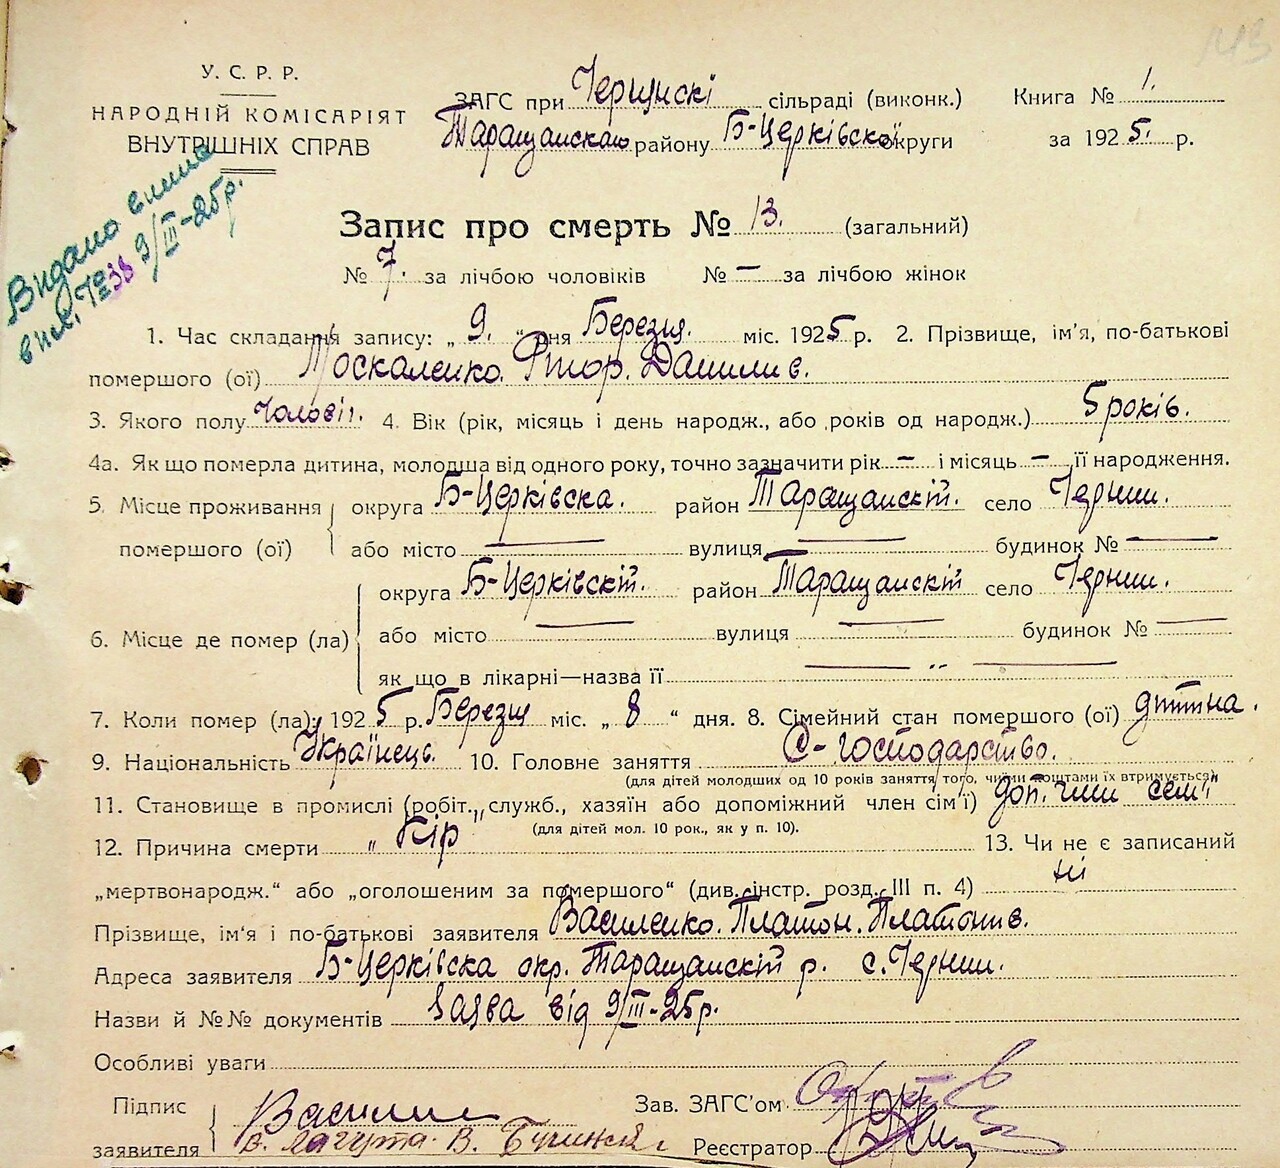 113
У. С. Р. Р.
НАРОДНІЙ КОМІСАРІЯТ
ВНУТРІШНІХ СПРАВ
ЗАГС при Чернинскі сільраді (виконк.) Книга № 1.
Таращанскаю району Б-Церківскої округи за 1925. р.
Видано
вип. №38 9/III-25р.
Запис про смерть № 13. (загальний)
№ 7. за лічбою чоловіків № — за лічбою жінок
1. Час складання запису: „ 9. “ дня Березня. міс. 1925 р. 2. Прізвище, ім'я, по-батькові
помершого (ої) Москаленко. Фтор. Данилив.
3. Якого полу Чолові. 4. Вік (рік, місяць і день народж., або років од народж.) 5 років.
4а. Як що померла дитина, молодша від одного року, точно зазначити рік — і місяць — її народження.
5. Місце проживання округа Б-Церківска. район Таращанскій. село Чернин.
помершого (ої) або місто — вулиця — будинок № —
округа Б-Церківскій. район Таращанскій село Чернин.
6. Місце де помер (ла) або місто — вулиця — будинок № —
як що в лікарні—назва її — „ —
7. Коли помер (ла): 1925 р. Березня міс. „ 8 “ дня. 8. Сімейний стан помершого (ої) дитина.
9. Національність Українець. 10. Головне заняття С-господарство.
(для дітей молодших од 10 років заняття того, чиїми коштами їх втримується)
11. Становище в промислі (робіт., служб., хазяїн або допоміжний член сім'ї) доп. член семї
(для дітей мол. 10 рок., як у п. 10).
12. Причина смерти „ Кір “ 13. Чи не є записаний
„мертвонародж.“ або „оголошеним за помершого“ (див. інстр. розд. III п. 4) ні
Прізвище, ім'я і по-батькові заявителя Василенко. Платон. Платонив.
Адреса заявителя Б-Церківска окр. Таращанскій р. с. Чернин.
Назви й №№ документів Заява від 9/III-25р.
Особливі уваги
Підпис Василен Зав. ЗАГС'ом
заявителя Реєстратор